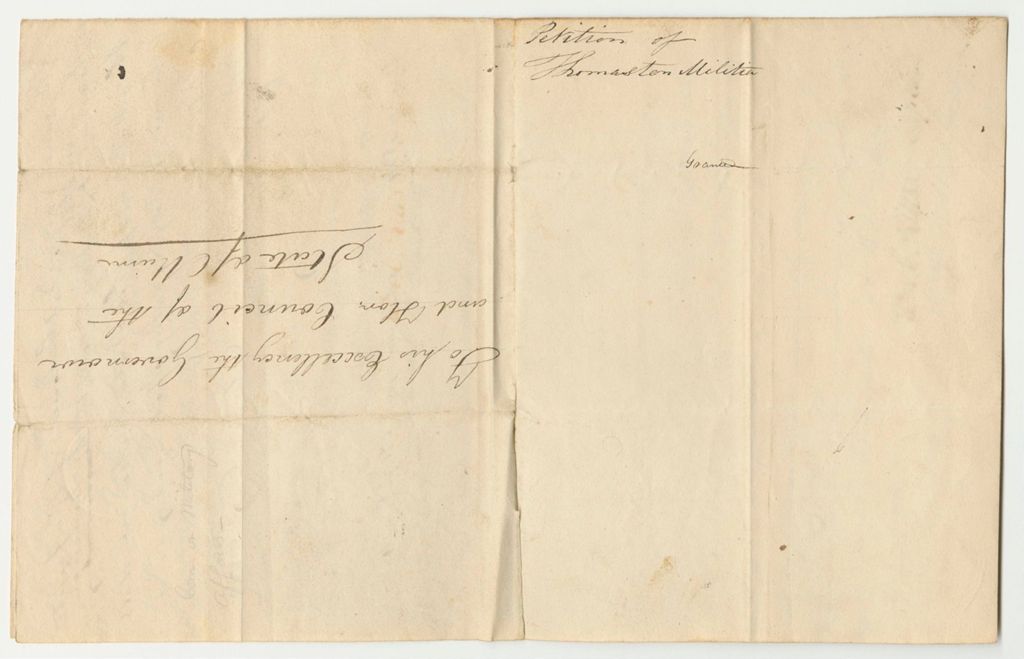 Petition of
Thomaston Militia
Granted
To his Excellency the Governour
and Hon. Council of the
State of Maine